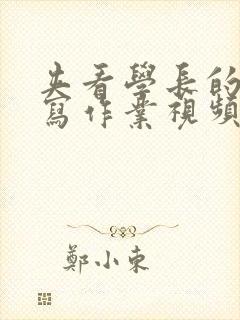 去看學長的
寫作業視頻
鄭小東